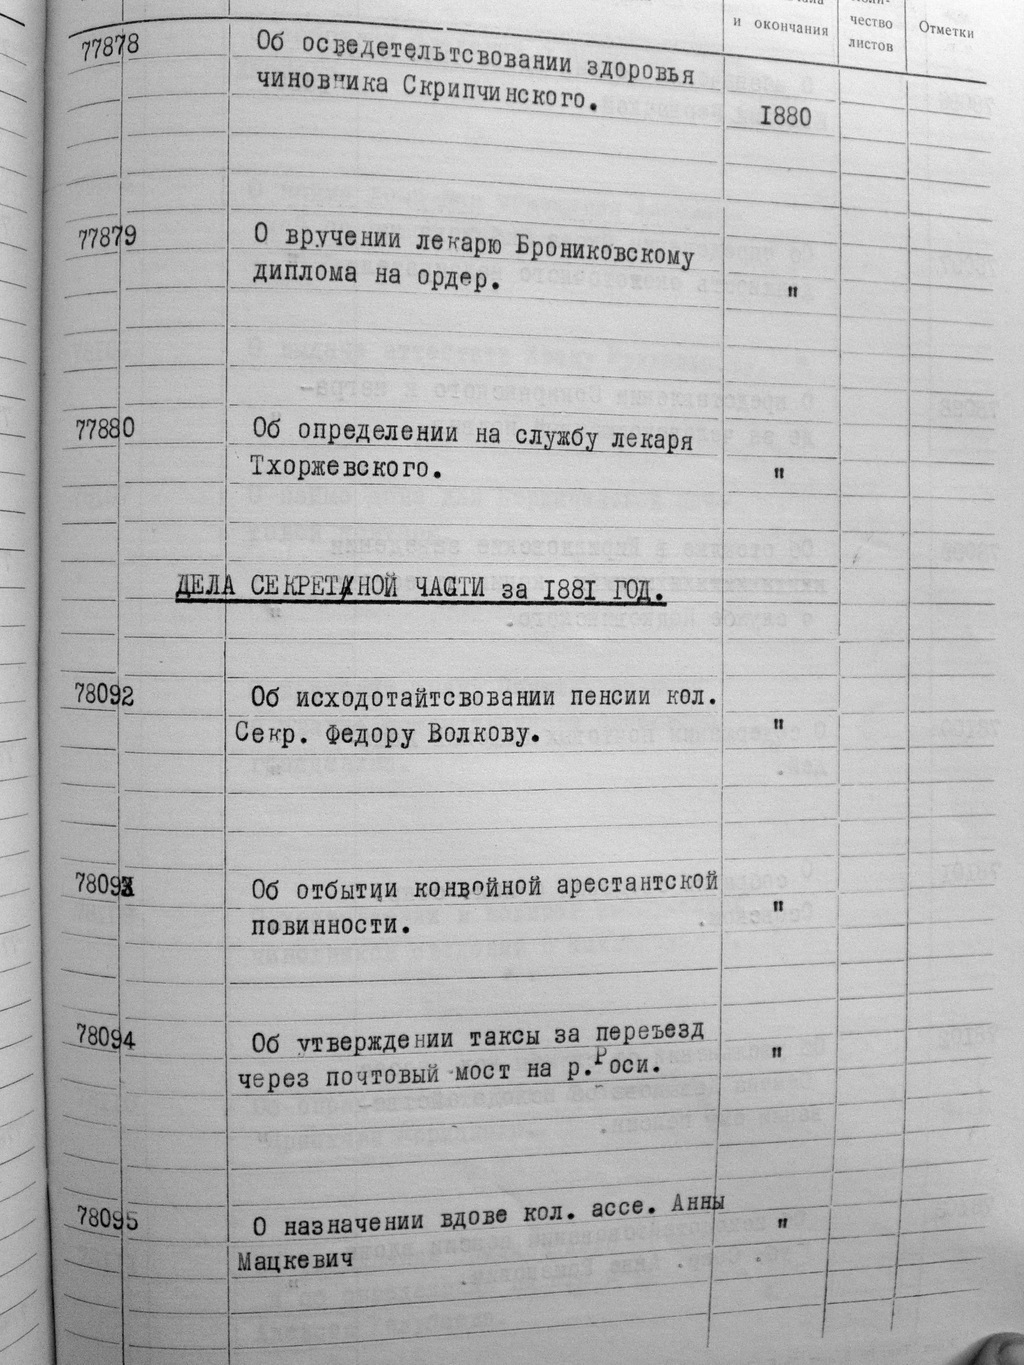 и окончания
чество
листов
Отметки
77878
Об осведетельтсвовании здоровья
чиновника Скрипчинского.
I880
77879
О вручении лекарю Брониковскому
диплома на ордер.
"
77880
Об определении на службу лекаря
Тхоржевского.
"
ДЕЛА СЕКРЕТНОЙ ЧАСТИ за I88I ГОД.
78092
Об исходотайтсвовании пенсии кол.
Секр. Федору Волкову.
"
78093
Об отбытии конвойной арестантской
повинности.
"
78094
Об утверждении таксы за переъезд
через почтовый мост на р.Роси.
"
78095
О назначении вдове кол. ассе. Анны
Мацкевич
"